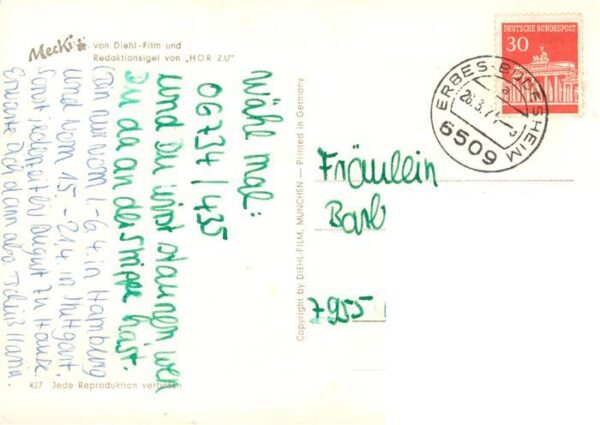 Mecki von Diehl-Film und
Redaktionsigel von „HÖR ZU"
Wähl mal:
06734/435
und Du wirst staunen wen
Du da an der Strippe hast.
Bin nur vom 1.-6.4. in Hamburg
und vom 15.-21.4. in Stuttgart,
sonst bis August zu Hause.
Erwarte Dich dann also. Tschüß
427 Jede Reproduktion verboten
Copyright by DIEHL-FILM, MÜNCHEN — Printed in Germany
DEUTSCHE BUNDESPOST
30
ERBES-BÜDESHEIM
a
26.3.7
6509
Fräulein
Barb
7955